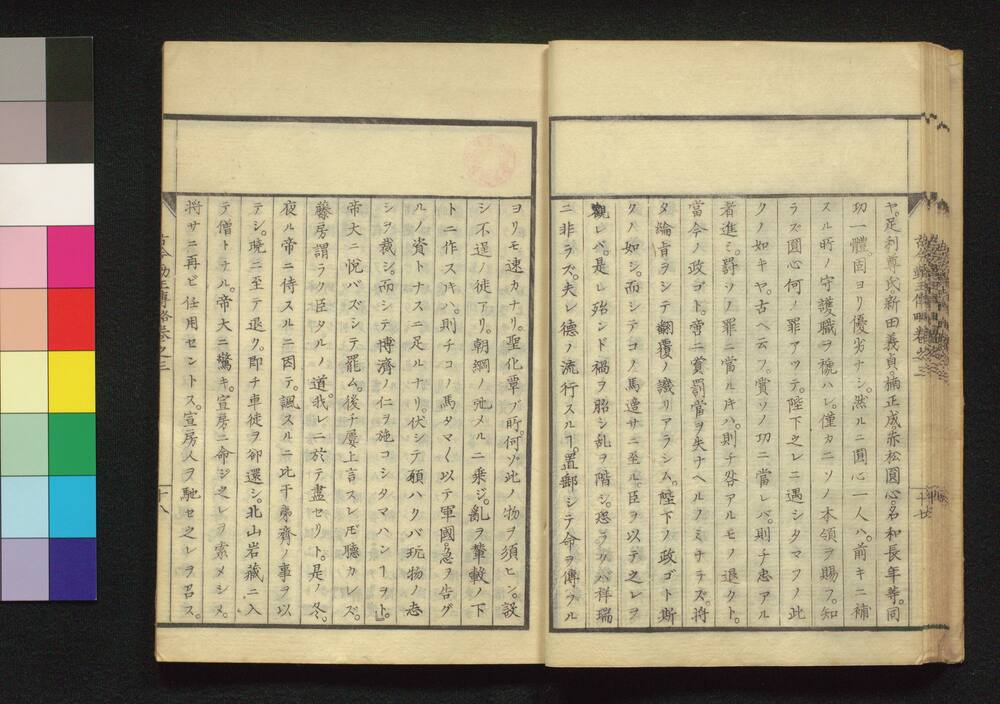 ヤ。足利尊氏。新田義貞。楠正成。赤松圓心。名和長年等。同
功一體。固ヨリ優劣ナシ。然ルニ圓心一人ハ。前キニ補
スル所ノ守護職ヲ褫ハレ。僅カニソノ本領ヲ賜フ。知
ラズ圓心何ノ罪アツテ。陛下之レニ遇シタマフノ此
クノ如キヤ。古ヘ云フ。賞ソノ功ニ當レバ。則チ忠アル
者進ミ。罰ソノ罪ニ當ル片ハ。則チ咎アルモノ退クト。
當今ノ政ゴト。啻ニ賞罰當ヲ失ナヘルノミナラズ。將
タ綸旨ヲシテ飜覆ノ譏リアラシム。陛下ノ政ゴト斯
クノ如シ。而シテコノ馬適サニ至ル。臣ヲ以テ之レヲ
觀レバ。是レ殆ンド禍ヲ胎シ亂ヲ階シ。恐ラクバ祥瑞
ニ非ラズ。夫レ德ノ流行スルヿ。置郵シテ命ヲ傳フル
ヨリモ速カナリ。聖化覃ブ所。何ゾ此ノ物ヲ須ヒン。設
シ不逞ノ徒アリ。朝綱ノ弛メルニ乘ジ。亂ヲ輦轂ノ下
トニ作ス片ハ。則チコノ馬タマ〱以テ軍國ノ急ヲ告グ
ルノ資トナスニ足ルナリ。伏シテ願ハクバ玩物ノ志
シヲ裁シ。而シテ博濟ノ仁ヲ施コシタマハンヿヲト。』
帝大ニ悅バズシテ罷ム。後チ屢上言スレ𪜈聽カレズ。
藤房謂ラク臣タルノ道。我レニ於テ盡セリト。是ノ冬。
夜ル帝ニ侍スルニ因テ。諷スルニ比干夷齊ノ事ヲ以
テシ。曉ニ至テ退ク。即チ車徒ヲ卻還シ。北山岩藏ニ入
テ僧トナル。帝大ニ驚キ。宣房ニ命ジ之レヲ索メシメ。
將サニ再ビ任用セントス。宣房人ヲ馳セ之レヲ召ス。
古今勤王傳略卷之三
十八